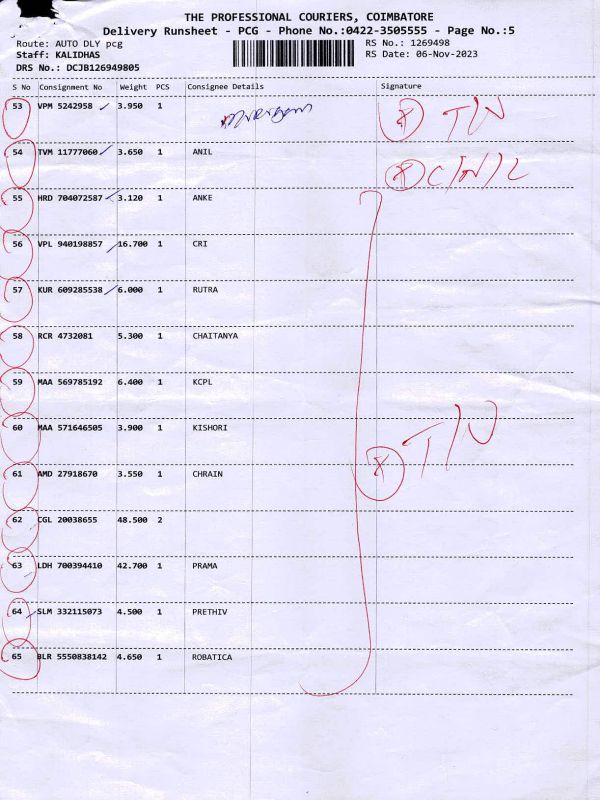 THE PROFESSIONAL COURIERS, COIMBATORE
Delivery Runsheet - PCG - Phone No.:0422-3505555 - Page No.:5
Route: AUTO DLY pcg RS No.: 1269498
Staff: KALIDHAS RS Date: 06-Nov-2023
DRS No.: DCJB126949805
S No Consignment No Weight PCS Consignee Details Signature
53 VPM 5242958 3.950 1 T/N
54 TVM 11777060 3.650 1 ANIL C/N/L
55 HRD 704072587 3.120 1 ANKE
56 VPL 940198857 16.700 1 CRI
57 KUR 609285538 6.000 1 RUTRA
58 RCR 4732081 5.300 1 CHAITANYA
59 MAA 569785192 6.400 1 KCPL
60 MAA 571646505 3.900 1 KISHORI T/N
61 AMD 27918670 3.550 1 CHRAIN
62 CGL 20038655 48.500 2
63 LDH 700394410 42.700 1 PRAMA
64 SLM 332115073 4.500 1 PRETHIV
65 BLR 5550838142 4.650 1 ROBATICA